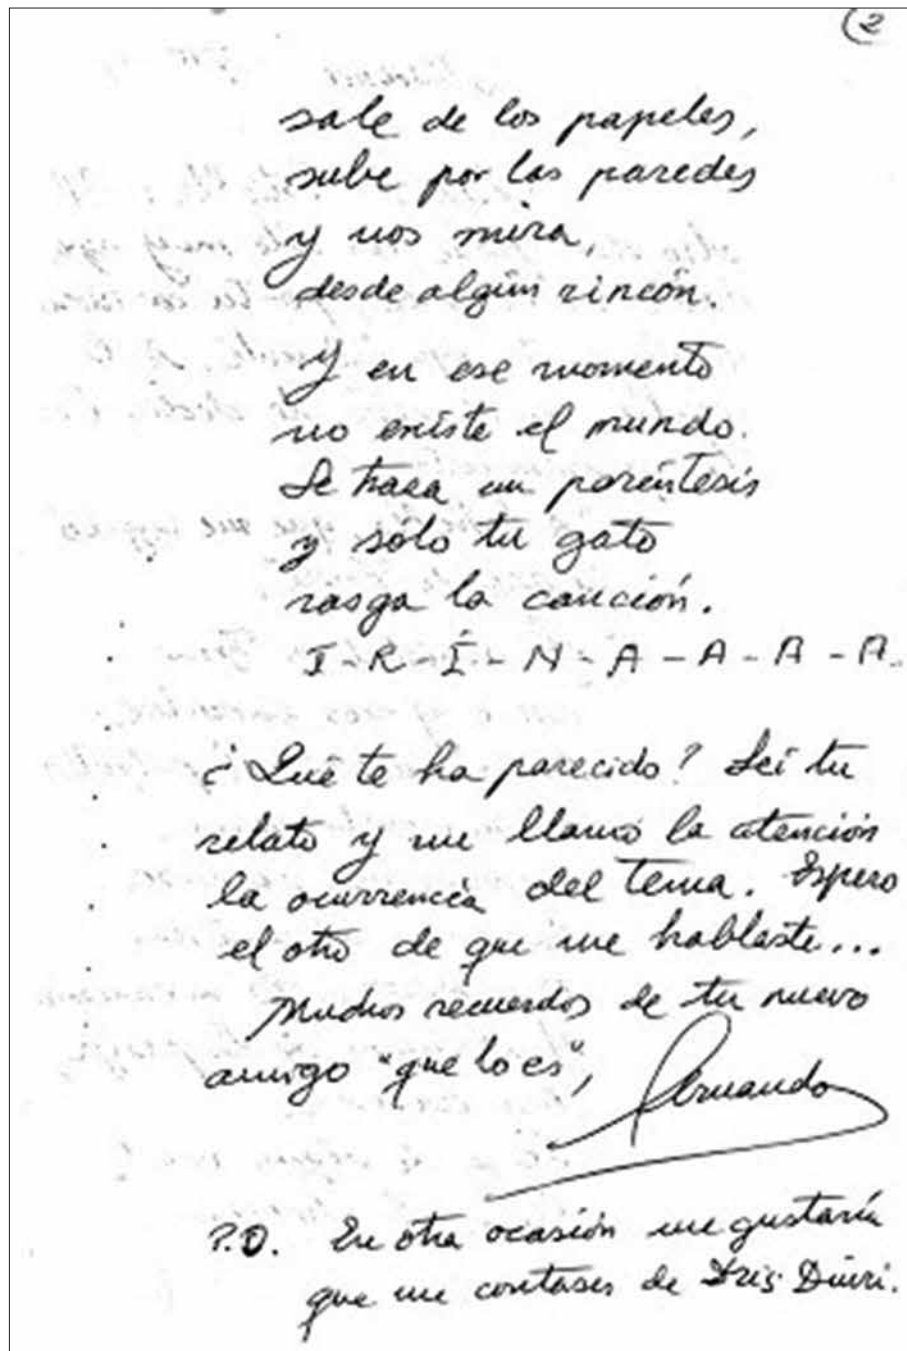 (2
sale de los papeles,
sube por las paredes
y nos mira,
desde algún rincón.
Y en ese momento
no existe el mundo.
Se traza un paréntesis
y sólo tu gato
rasga la canción.
I-R-Í-N-A-A-A-A.
¿Qué te ha parecido? Leí tu
relato y me llamó la atención
la ocurrencia del tema. Espero
el otro de que me hablaste...
Muchos recuerdos de tu nuevo
amigo "que lo es",
Fernando
P.D. En otra ocasión me gustaría
que me contases de Dris Diuri.